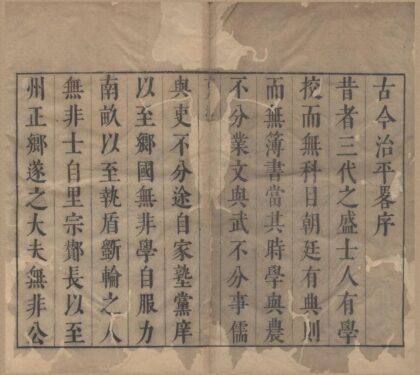 古今治平畧序
昔者三代之盛士人有學
挍而無科目朝廷有典則
而無簿書當其時學與農
不分業文與武不分事儒
與吏不分途自家塾黨庠
以至鄉國無非學自服力
南畝以至執盾斵輪之人
無非士自里宗酇長以至
州正鄉遂之大夫無非公